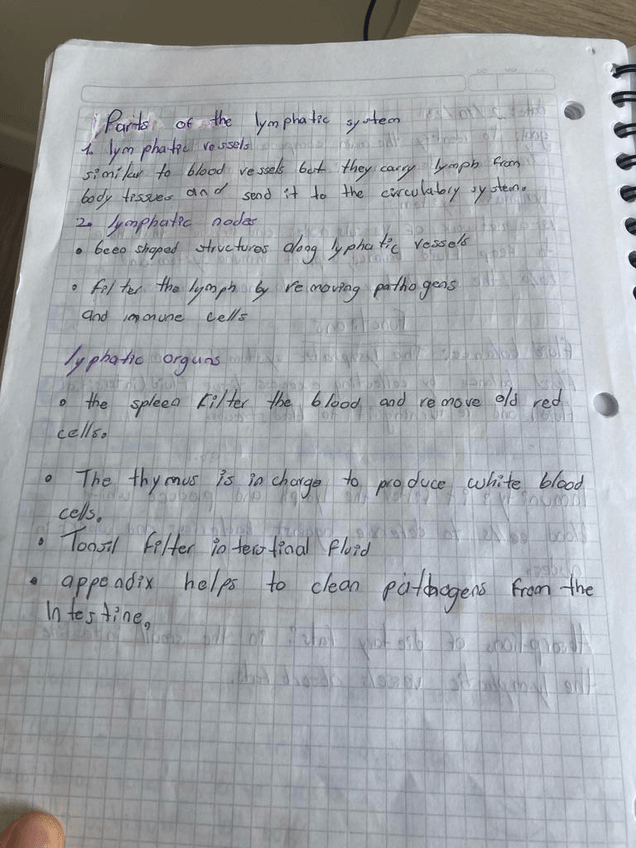 Parts of the lymphatic system
1. lymphatic vessels
similar to blood vessels but they carry lymph from
body tissues and send it to the circulatory system.
2. lymphatic nodes
• been shaped structures along lyphatic vessels
• filter the lymph by removing pathogens
and immune cells
lyphatic organs
• the spleen filter the blood and remove old red
cells.
• The thymus is in charge to produce white blood
cells.
• Tonsil filter interstinal fluid
• appendix helps to clean pathogens from the
Intestine,